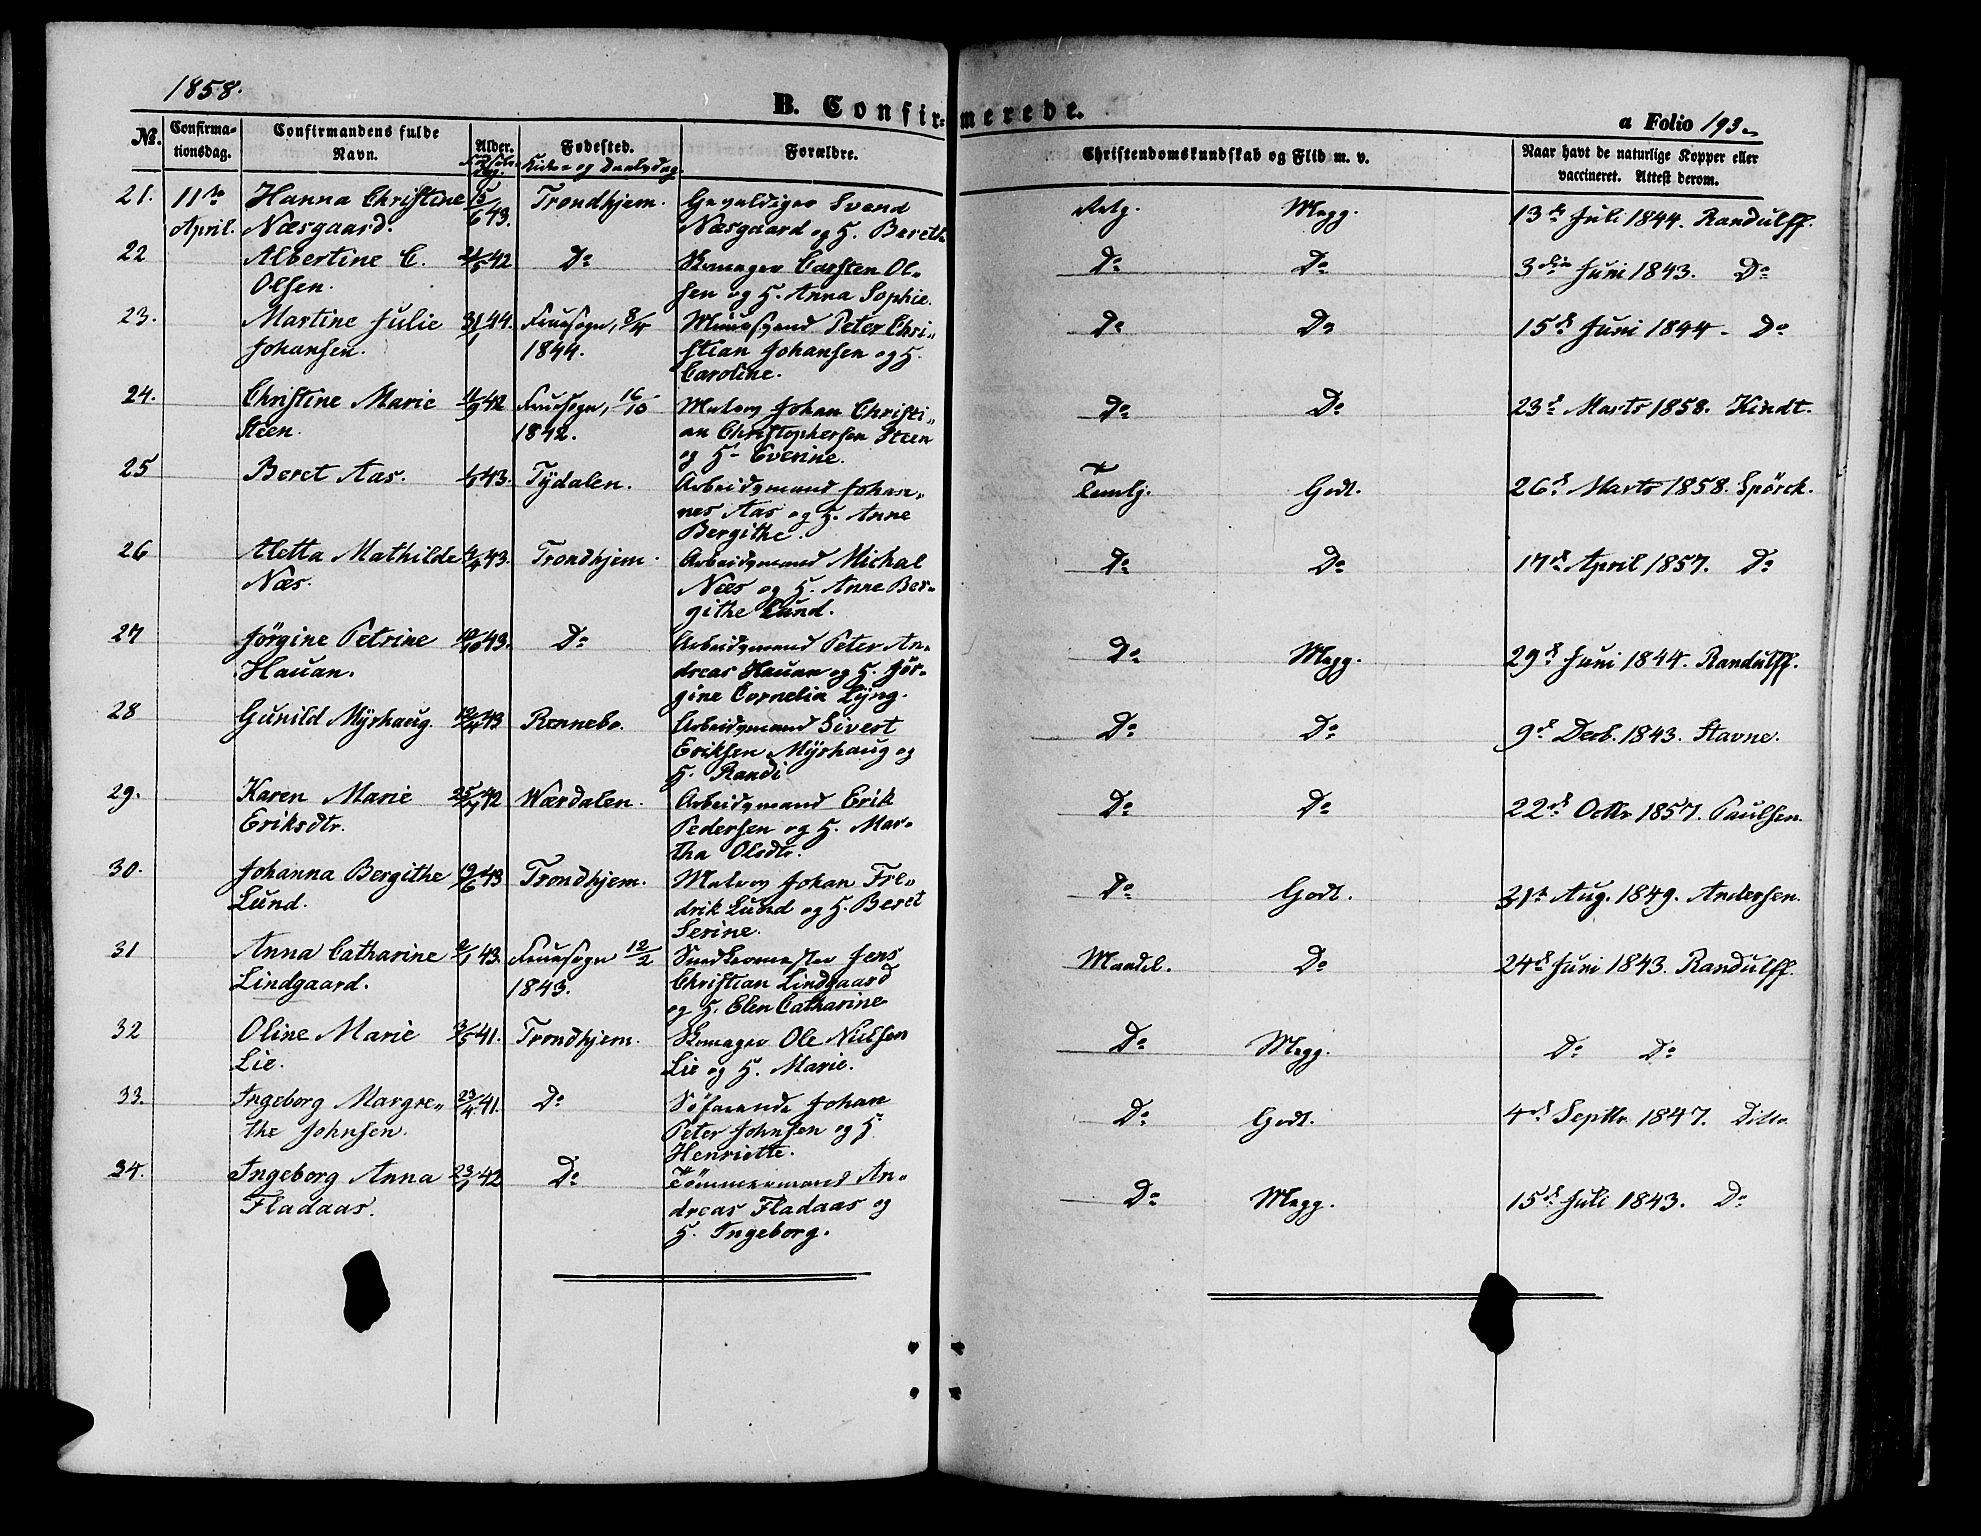 1858.
B. Confirmerede.
a Folio 193
No.
Confirmationsdag.
Confirmandens fulde Navn.
Alder.
Fødested.
Forældre.
Christendomskundskab og Flid m. v.
Naar havt de naturlige Kopper eller
vaccineret. Attest derom.
21. 11te Hanna Christine 15/6 43. Trondhjem. Svend Megg. 13de Juli 1844. Randulff.
April. Næsgaard. Næsgaard og H. Bereth
22 Albertine C. 42 Do Skomager Carsten Ol- Do Do 3die Juni 1843. Do
Olsen. sen og H. Anna Sophie.
23. Martine Julie 31/1 44. Fruesogn, 8/4 Peter Chri- Do Do 15d Juni 1844 - Do
Johansen. 1844. stian Johansen og H.
Caroline.
24. Christine Marie 11/9 42 Fruesogn, 16/10 Johan Christi- Do Do 23d Marts 1858. Kindt.
Steen. 1842. an Christophersen Steen
og H. Everine.
25 Beret Aas. 43. Tydalen. Arbeidsmand Johan- Godt. 26d Marts 1858. Spörck.
nes Aas og H. Anne
Bergithe.
26 Aletta Mathilde 43. Trondhjem. Arbeidsmand Michal Do Do 17d April 1857. Do
Næs. Næs og H. Anne Ber-
githe Lund.
27 Jörgine Petrine 43. Do Arbeidsmand Peter An- Do Megg. 29d Juni 1844. Randulff.
Hauan. dreas Hauan og H. Jör-
gine Cornelia Lyng.
28 Gunild Myrhaug 43 Rennebo. Arbeidsmand Sivert Do Do 9d Decb. 1843. Stavne.
Eriksen Myrhaug og
H. Randi
29. Karen Marie 42 Værdalen. Arbeidsmand Erik Do Do 22d Octbr 1857. Paulsen.
Eriksdtr. Pedersen og H. Mar-
tha Olsdtr.
30. Johanna Bergithe 19/6 43 Trondhjem. Johan Fre- Do Godt. 31te Aug. 1849. Andersen.
Lund. drik Lund og H. Beret
Serine.
31 Anna Catharine 43. Fruesogn 12/2 Jens Maadel. Do 24d Juni 1843. Randulff.
Lindgaard. 1843. Christian Lindgaard
og H. Elen Catharine
32 Oline Marie 3/5 41. Trondhjem. Skomager Ole Nielsen Do Megg. Do Do
Lie. Lie og H. Marie.
33. Ingeborg Margre- 23/4 41. Do Söfarende Johan Do Godt. 4d Septbr 1847. Ditto
the Johnsen. Peter Johnsen og H.
Henriette.
34. Ingeborg Anna 42 Do Tömmermand An- Do Megg. 15d Juli 1843. Do
Fladaas. dreas Fladaas og
H. Ingeborg.